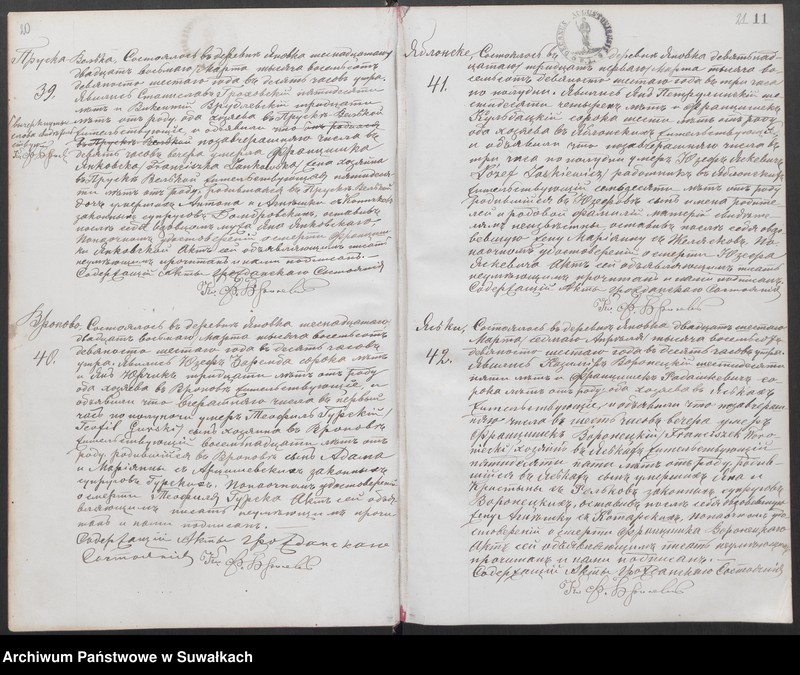 10
Пруска Велька, Состоялось въ деревнѣ Яновка шестнадцатаго
двадцать восьмаго Марта тысяча восемьсотъ
39. девяносто шестаго года въ десять часовъ утра.
Явились Станиславъ Гроховскій пятидесяти
лѣтъ и Викентій Врублевскій тридцати
лѣтъ отъ роду, оба хозяева въ Прускѣ Велькой
жительствующіе, и объявили что
въ Прускѣ Велькой позавчерашняго числа въ
девять часовъ вечера умерла Францишка
Янковска, жена хозяина
въ Прускѣ Велькой жительствующая пятидеся-
ти лѣтъ отъ роду, родившаяся въ Прускѣ Велькой
дочь умершихъ Антона и
законныхъ супруговъ Домбровскихъ, оставивъ
послѣ себя вдовцомъ мужа Яна Янковскаго.
По наочномъ удостовѣреніи о смерти Францыш-
ки Янковской Актъ сей объявляющимъ писать
неумѣющимъ прочитанъ и нами подписанъ.—
Содержащій Акты Гражданскаго Состоянія
Вроново, Состоялось въ деревнѣ Яновка шестнадцатаго
двадцать восьмаго Марта тысяча восемьсотъ
40. девяносто шестаго года въ десять часовъ
утра. Явились Юзефъ Заремба сорока лѣтъ
и Янъ Юрчикъ тридцати лѣтъ отъ роду
оба хозяева въ Вроновѣ жительствующіе, и
объявили что вчерашняго числа въ первый
часъ по полуночи умеръ Теофиль Гурскій
/Teofil Gurski/ сынъ хозяина въ Вроновѣ
жительствующій восемнадцати лѣтъ отъ
роду, родившійся въ Вроновѣ сынъ Адама
и Маріянны съ законныхъ
супруговъ Гурскихъ. По наочномъ удостовѣреніи
о смерти Теофиля Гурска Актъ сей объя-
вляющимъ писать неумѣющимъ прочи-
танъ и нами подписанъ.—
Содержащій Акты Гражданскаго
Состоянія
21. 11
Яблонске, Состоялось въ деревнѣ Яновка девятнад-
цатаго/тридцать перваго/Марта тысяча во-
41. семьсотъ девяносто шестаго года въ три часа
по полудни. Явились Янъ ше-
стидесяти четырехъ лѣтъ и Францишекъ
Кульбацкій сорока шести лѣтъ отъ роду
оба хозяева въ Яблонскихъ жительствующіе,
и объявили что позавчерашняго числа въ
три часа по полудни умеръ Юзефъ Яскевичъ
/Józef Jaskiewicz/ работникъ въ Яблонскихъ
жительствующій семьдесяти лѣтъ отъ роду
родившійся въ Юзефовѣ сынъ имена родите-
лей и родовой фамиліи матери свидѣте-
лямъ неизвѣстны, оставивъ послѣ себя овдо-
вѣвшую жену Маріянну съ Желязковъ. По
наочномъ удостовѣреніи о смерти Юзефа
Яскевича Актъ сей объявляющимъ писать
неумѣющимъ прочитанъ и нами подписанъ.
Содержащій Акты Гражданскаго Состоянія
Ясѣвки, Состоялось въ деревнѣ Яновка двадцать шестаго
Марта седьмаго Апрѣля тысяча восемьсотъ
42. девяносто шестаго года въ десять часовъ утра.
Явились Казимиръ Воронецкій шестидесяти
пяти лѣтъ и Францишекъ со-
рока лѣтъ отъ роду, оба хозяева въ
жительствующіе, и объявили что позавчераш-
няго числа въ шесть часовъ вечера умеръ
Францишекъ Воронецкій /Franciszek Woro-
necki/ хозяинъ въ жительствующій
пятидесяти пяти лѣтъ отъ роду родив-
шійся въ сынъ умершихъ Яна и
Кристыны съ законныхъ супруговъ
Воронецкихъ, оставивъ послѣ себя овдовѣвшую
жену съ По наочномъ удо-
стовѣреніи о смерти Францишка Воронецкаго
Актъ сей объявляющимъ писать неумѣющимъ
прочитанъ и нами подписанъ.—
Содержащій Акты Гражданскаго Состоянія
Archiwum Państwowe w Suwałkach